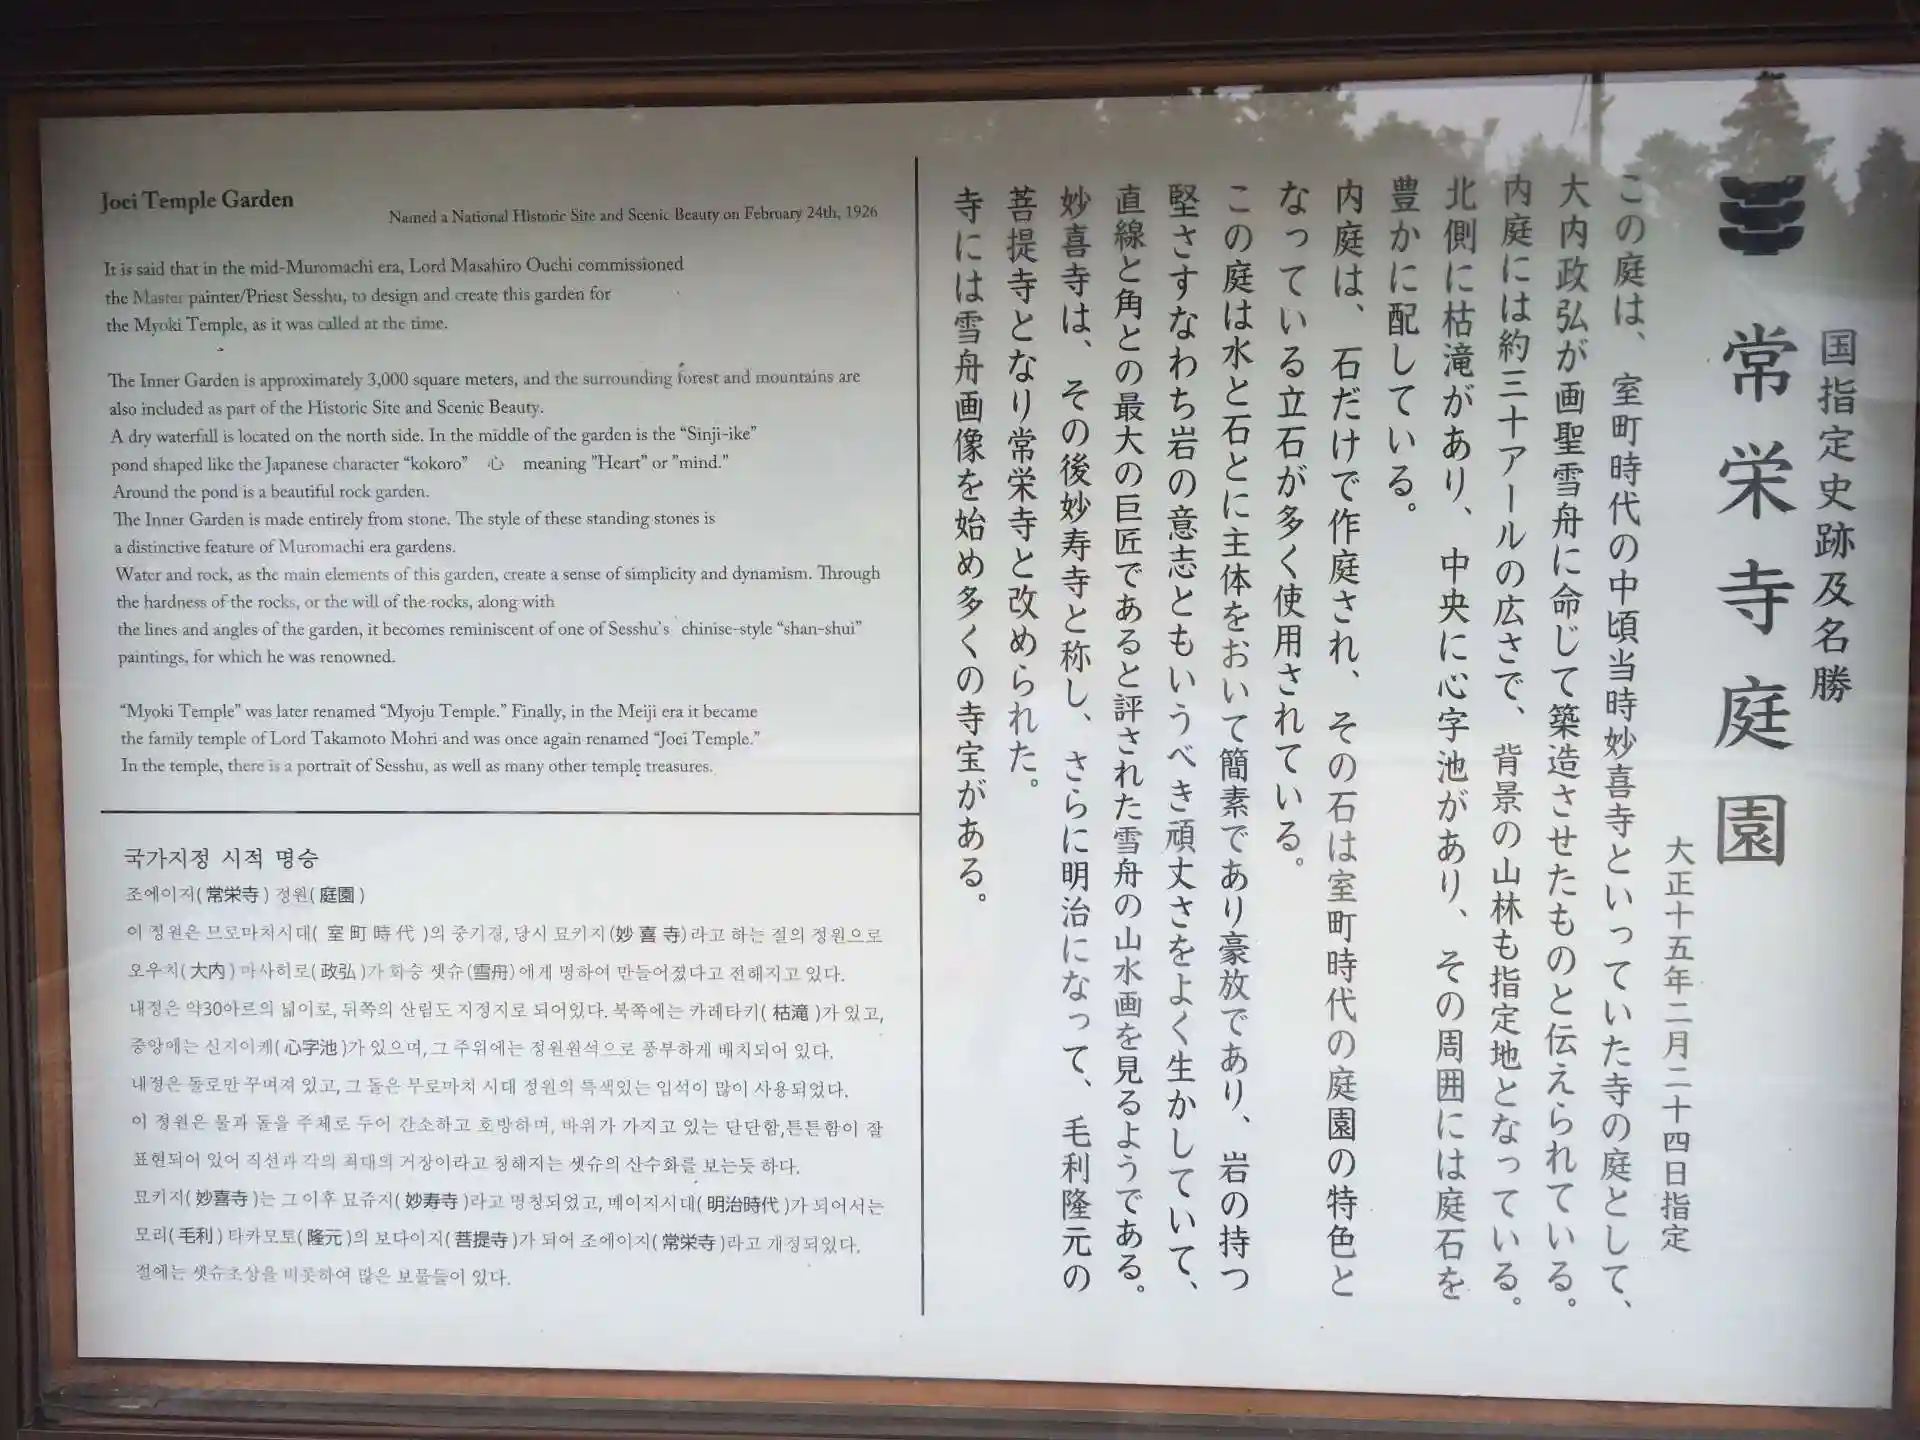 国指定史跡及名勝
常栄寺庭園
大正十五年二月二十四日指定
この庭は、室町時代の中頃当時妙喜寺といっていた寺の庭として、
大内政弘が画聖雪舟に命じて築造させたものと伝えられている。
内庭には約三十アールの広さで、背景の山林も指定地となっている。
北側に枯滝があり、中央に心字池があり、その周囲には庭石を
豊かに配している。
内庭は、石だけで作庭され、その石は室町時代の庭園の特色と
なっている立石が多く使用されている。
この庭は水と石とに主体をおいて簡素であり豪放であり、岩の持つ
堅さすなわち岩の意志ともいうべき頑丈さをよく生かしていて、
直線と角との最大の巨匠であると評された雪舟の山水画を見るようである。
妙喜寺は、その後妙寿寺と称し、さらに明治になって、毛利隆元の
菩提寺となり常栄寺と改められた。
寺には雪舟画像を始め多くの寺宝がある。
Joei Temple Garden
Named a National Historic Site and Scenic Beauty on February 24th, 1926
It is said that in the mid-Muromachi era, Lord Masahiro Ouchi commissioned
the Master painter/Priest Sesshu, to design and create this garden for
the Myoki Temple, as it was called at the time.
The Inner Garden is approximately 3,000 square meters, and the surrounding forest and mountains are
also included as part of the Historic Site and Scenic Beauty.
A dry waterfall is located on the north side. In the middle of the garden is the “Sinji-ike”
pond shaped like the Japanese character “kokoro” 心 meaning "Heart" or "mind."
Around the pond is a beautiful rock garden.
The Inner Garden is made entirely from stone. The style of these standing stones is
a distinctive feature of Muromachi era gardens.
Water and rock, as the main elements of this garden, create a sense of simplicity and dynamism. Through
the hardness of the rocks, or the will of the rocks, along with
the lines and angles of the garden, it becomes reminiscent of one of Sesshu's chinise-style “shan-shui”
paintings, for which he was renowned.
“Myoki Temple” was later renamed “Myoju Temple.” Finally, in the Meiji era it became
the family temple of Lord Takamoto Mohri and was once again renamed “Joei Temple.”
In the temple, there is a portrait of Sesshu, as well as many other temple treasures.
국가지정 시적 명승
조에이지(常栄寺) 정원(庭園)
이 정원은 므로마치시대(室町時代)의 중기경, 당시 묘키지(妙喜寺)라고 하는 절의 정원으로
오우치(大内) 마사히로(政弘)가 화승 셋슈(雪舟)에게 명하여 만들어졌다고 전해지고 있다.
내정은 약30아르의 넓이로, 뒤쪽의 산림도 지정지로 되어있다. 북쪽에는 카레타키(枯滝)가 있고,
중앙에는 신지이케(心字池)가 있으며, 그 주위에는 정원원석으로 풍부하게 배치되어 있다.
내정은 돌로만 꾸며져 있고, 그 돌은 무로마치 시대 정원의 특색있는 입석이 많이 사용되었다.
이 정원은 물과 돌을 주체로 두어 간소하고 호방하며, 바위가 가지고 있는 단단함,튼튼함이 잘
표현되어 있어 직선과 각의 최대의 거장이라고 칭해지는 셋슈의 산수화를 보는듯 하다.
묘키지(妙喜寺)는 그 이후 묘쥬지(妙寿寺)라고 명칭되었고, 메이지시대(明治時代)가 되어서는
모리(毛利) 타카모토(隆元)의 보다이지(菩提寺)가 되어 조에이지(常栄寺)라고 개정되었다.
절에는 셋슈초상을 비롯하여 많은 보물들이 있다.